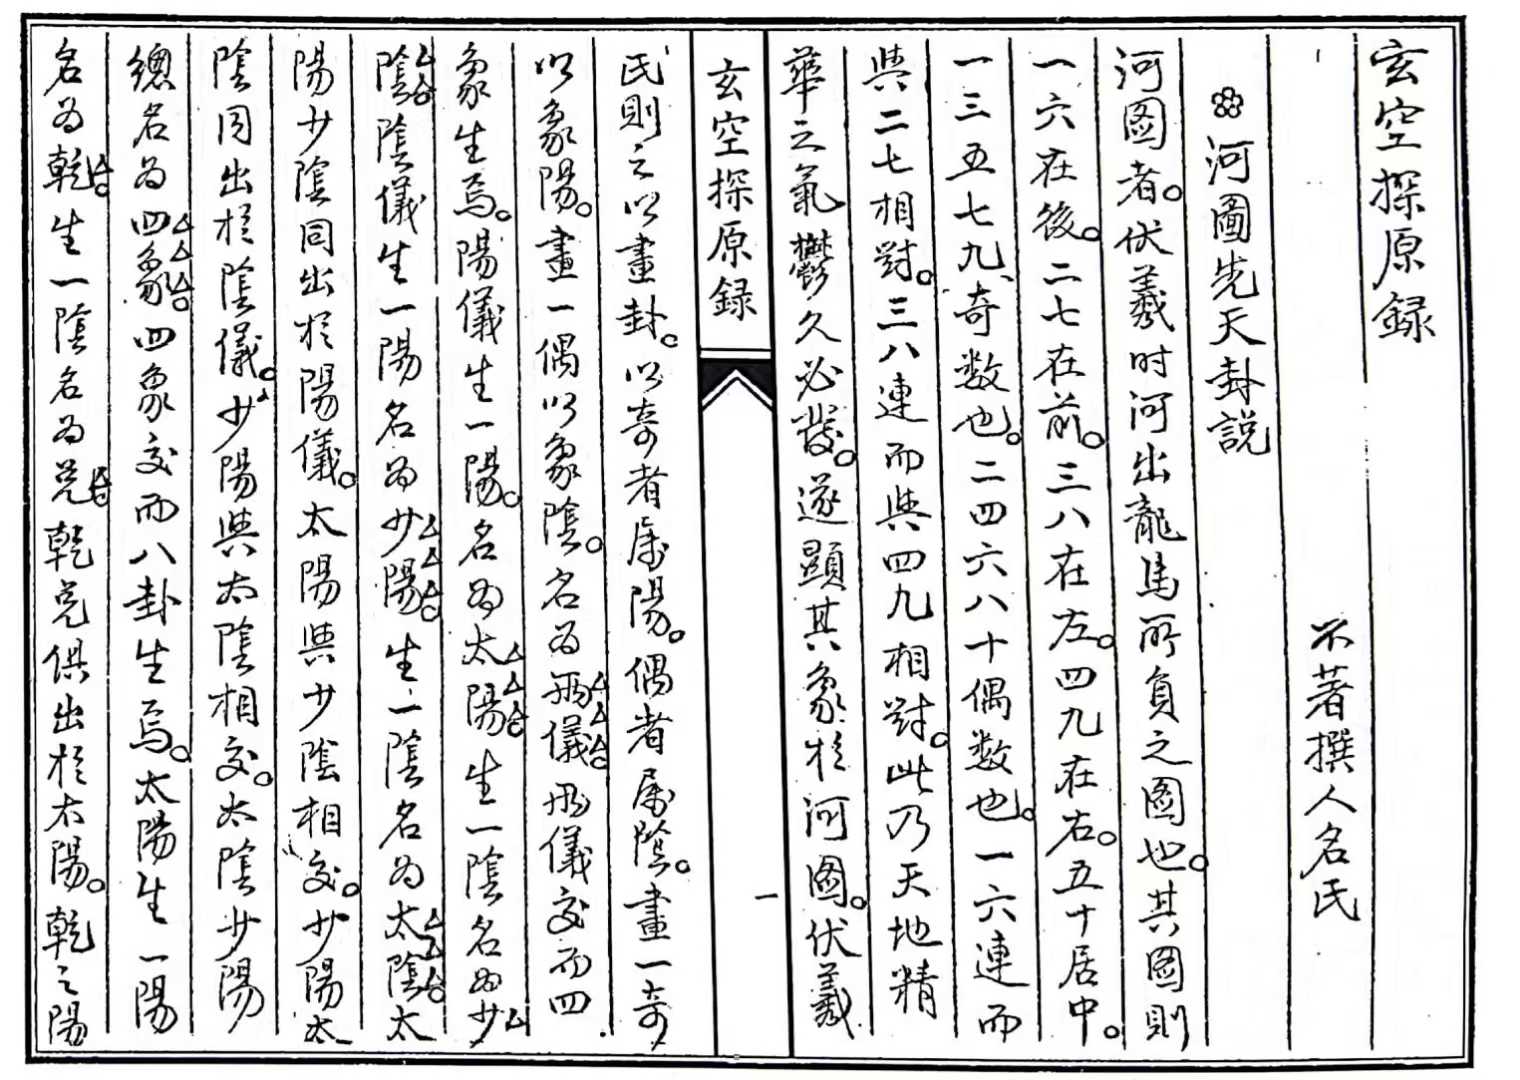 玄空探原録
不著撰人名氏
河圖先天卦説
河图者。伏羲时河出龍馬所負之图也。其图則
一六在後。二七在前。三八在左。四九在右。五十居中。
一三五七九、奇数也。二四六八十偶数也。一六連而
與二七相對。三八連而與四九相對。此乃天地精
華之氣鬱久必發。遂顯其象於河图。伏羲
玄空探原録
一
氏則之以畫卦。以奇者属陽。偶者属陰。畫一奇
以象陽。畫一偶以象陰。名为兩儀兩儀交而四
象生焉。陽儀生一陽。名为太陽生一陰名为少
陰陰儀生一陽名为少陽生一陰名为太陰太
陽少陰同出於陽儀。太陽與少陰相交。少陽太
陰同出於陰儀。少陽與太陰相交。太陰少陽
總名为四象四象交而八卦生焉。太陽生一陽
名为乾生一陰名为兑乾兑俱出於太陽。乾之陽